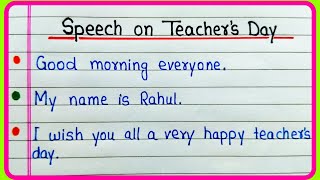 Speech on Teacher's Day
Good morning everyone.
My name is Rahul.
I wish you all a very happy teacher's
day.